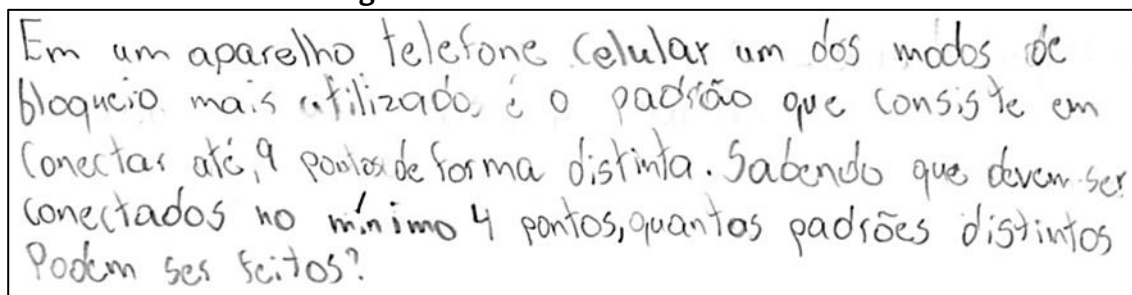 Em um aparelho telefone celular um dos modos de
bloqueio mais utilizado, é o padrão que consiste em
conectar até, 9 pontos de forma distinta. Sabendo que devem ser
conectados no mínimo 4 pontos, quantos padrões distintos
Podem ser feitos?